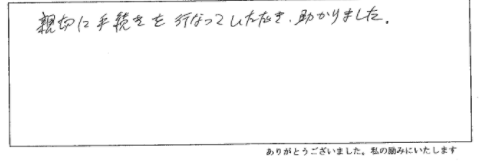 親切に手続きを行なっていただき、助かりました。
ありがとうございました。私の励みにいたします